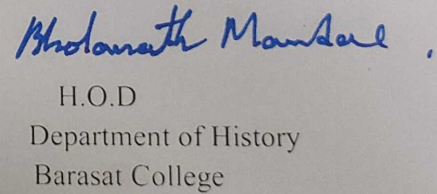 Bholanath Mondal.
H.O.D
Department of History
Barasat College